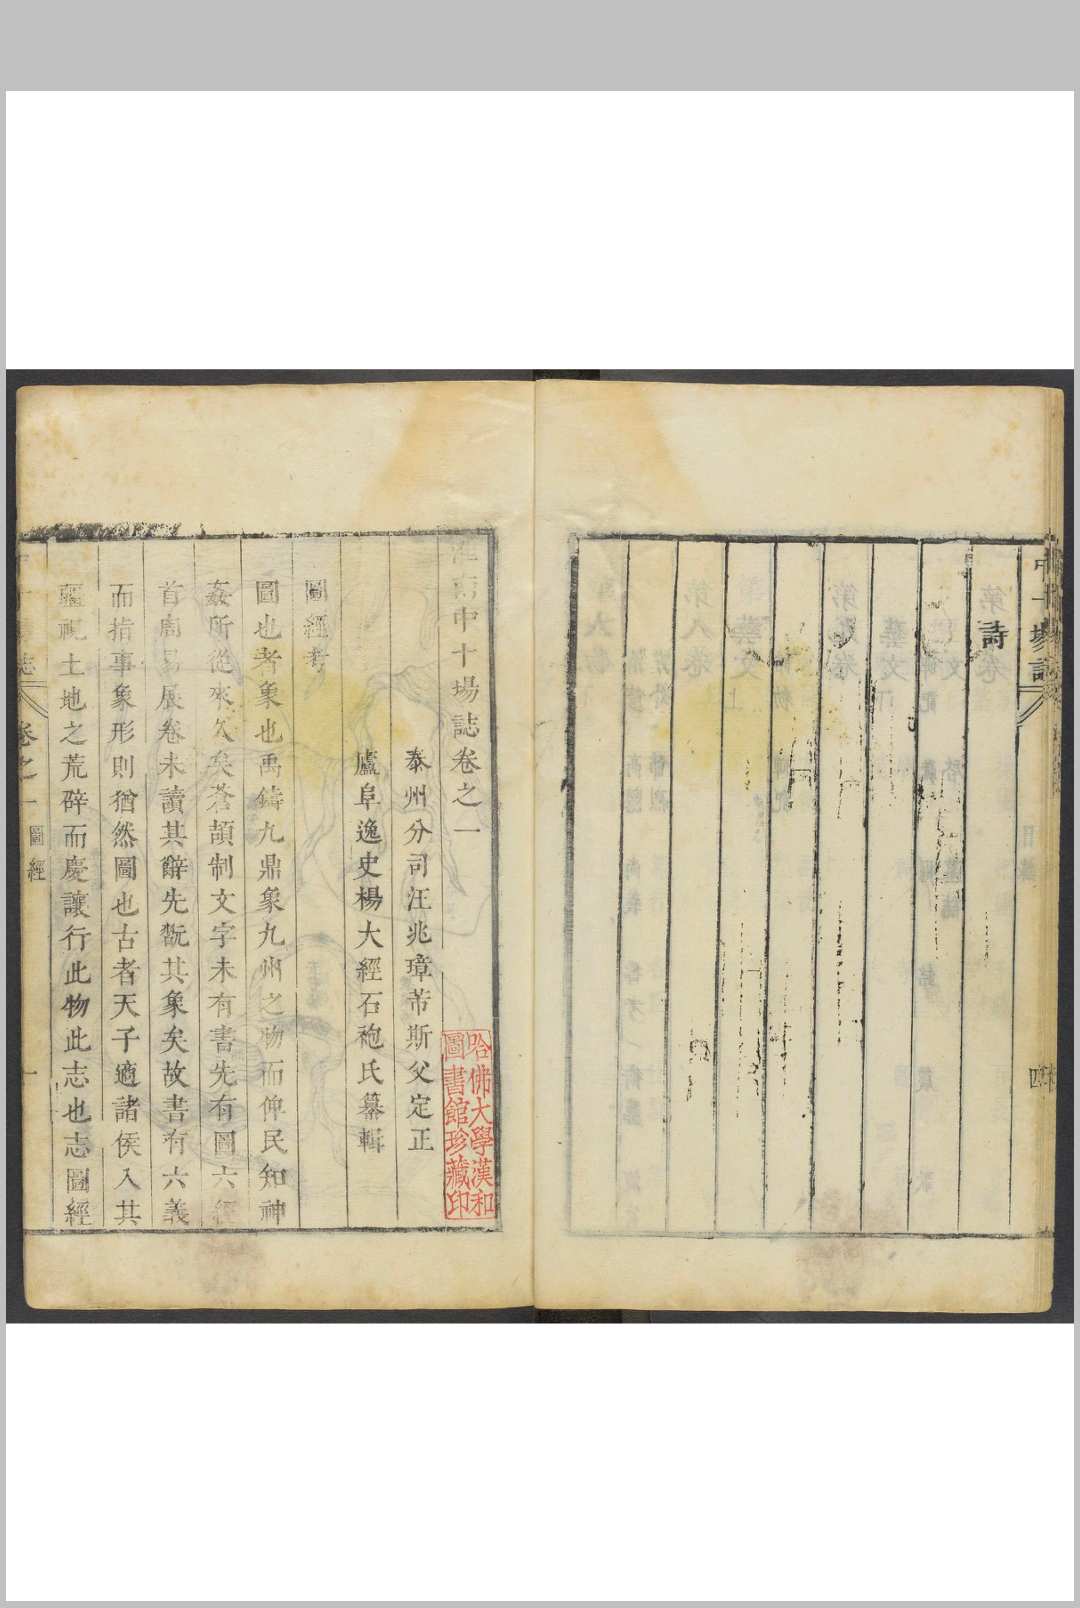 中十場誌
四
詩
淮南中十場誌卷之一
泰州分司汪兆璋芾斯父定正
廬阜逸史楊大經石袍氏纂輯
圖經考
圖也者象也禹鑄九鼎象九州之物而俾民知神
姦所從來久矣蒼頡制文字未有書先有圖六經
首周易展卷未讀其辭先翫其象矣故書有六義
而指事象形則猶然圖也古者天子適諸侯入其
疆視土地之荒辟而慶讓行此物此志也志圖經
志
卷之一
圖經
一
哈佛大學漢和
圖書館珍藏印